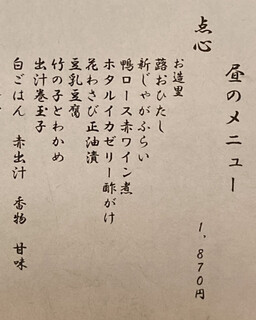 昼のメニュー
点心 1,870円
お造里
蕗おひたし
新じゃがふらい
鴨ロース赤ワイン煮
ホタルイカゼリー酢がけ
花わさび正油漬
豆乳豆腐
竹の子とわかめ
出汁巻玉子
白ごはん 赤出汁 香物 甘味